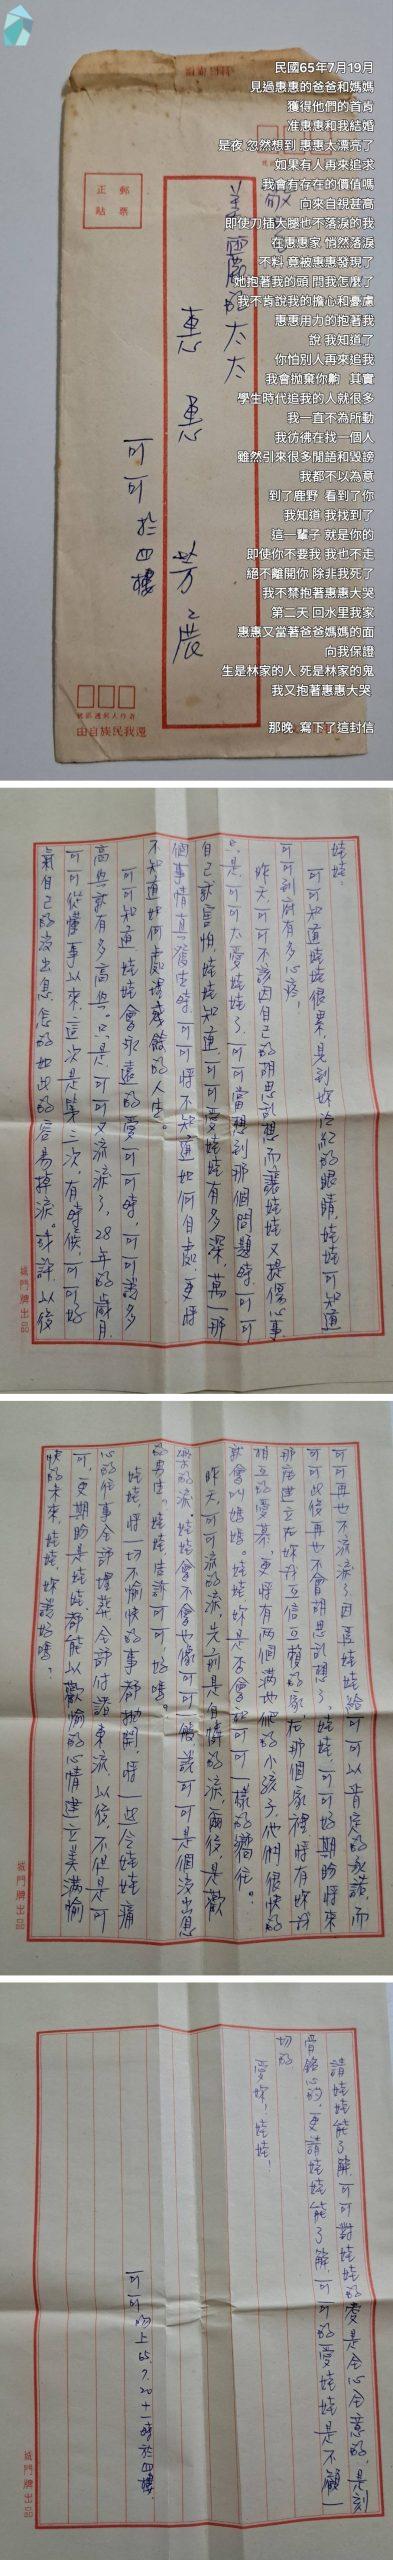 民國65年7月19月
見過惠惠的爸爸和媽媽
獲得他們的首肯
准惠惠和我結婚
是夜 忽然想到 惠惠太漂亮了
如果有人再來追求
我會有存在的價值嗎
向來自視甚高
即使刀插大腿也不落淚的我
在惠惠家 悄然落淚
不料 竟被惠惠發現了
她抱著我的頭 問我怎麼了
我不肯說我的擔心和憂慮
惠惠用力的抱著我
說 我知道了
你怕別人再來追我
我會拋棄你齁 其實
學生時代追我的人就很多
我一直不為所動
我彷彿在找一個人
雖然引來很多閒語和毀謗
我都不以為意
到了鹿野 看到了你
我知道 我找到了
這一輩子 就是你的
即使你不要我 我也不走
絕不離開你 除非我死了
我不禁抱著惠惠大哭
第二天 回水里我家
惠惠又當著爸爸媽媽的面
向我保證
生是林家的人 死是林家的鬼
我又抱著惠惠大哭
那晚 寫下了這封信
正 郵
貼 票
敬
美麗的太太
惠惠 芳展
可可於四樓
由自族民我還
娃娃:
可可知道娃娃很累,見到妳泛紅的眼睛,娃娃可知道
可可到底有多心疼!
昨天,可可不該因自己的胡思亂想而讓娃娃又提傷心事
只是,可可太愛娃娃了,可可當想到那個問題時,可可
自己就害怕,娃娃知道,可可愛娃娃有多深,萬一那
個事情真發生時,可可將不知道如何自處,更將
不知道如何處理殘餘的人生。
可可知道娃娃會永遠的愛可可時,可可說多
高興就有多高興。只是,可可又流淚了,28年的歲月
可可從懂事以來,這次是第三次,有時候,可可好
氣自己的沒出息,怎的如此的容易掉淚。或許,以後
城門牌出品
可可再也不流淚了,因為娃娃給可可以肯定的承諾,而
可可此後再也不會胡思亂想了,娃娃,可可好期盼將來
那座建立在妳我互信互賴的家,在那個家裡,將有妳我
相互的愛慕,更將有兩個滿地爬的小孩子,他們很快的
就會叫媽媽。娃娃,妳是否會和可可一樣的嚮往。
昨天,可可流的淚,先前是自悼的淚,爾後是歡
樂的淚。娃娃會不會也像可可一般說可可是個沒出息
的男生,娃娃告訴可可,好嗎。
娃娃,將一切不愉快的事都拋開,將一些令娃娃痛
心的往事全部埋葬,全部付諸東流,以後,不但是可
可,更期盼是娃娃,都能以歡愉的心情建立美滿愉
快的未來,娃娃,妳說好嗎?
城門牌出品
請娃娃能了解,可可對娃娃的愛是全心全意的,是刻
骨銘心的,更請娃娃能了解,可可的愛娃娃是不顧一
切的
愛妳!娃娃!
可可吻上65.7.20十一時於四樓.
城門牌出品